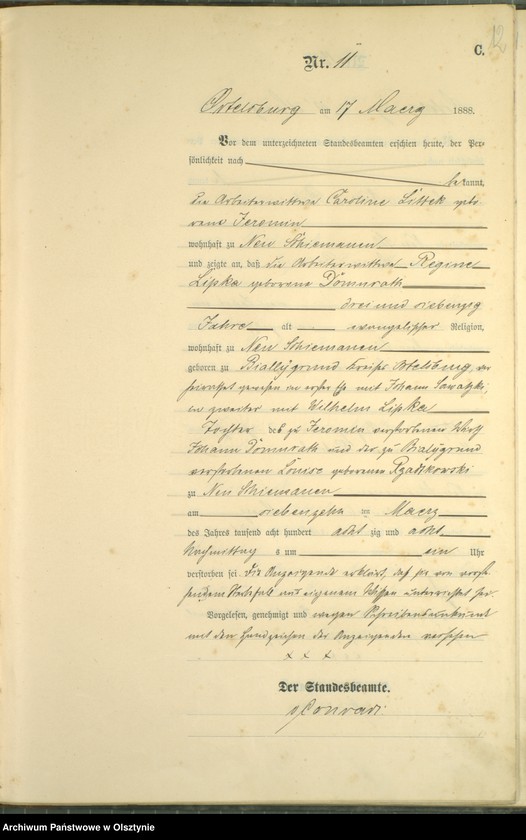 12
C.
Nr. 11
Ortelsburg am 17 Maerz 1888.
Vor dem unterzeichneten Standesbeamten erschien heute, der Per-
sönlichkeit nach
bekannt,
die Arbeiterwittwe Caroline Littek gebo
rene Jeromin
wohnhaft zu Neu Schiemanen
und zeigte an, daß die Arbeiterwittwe Regine
Lipka geborene Domnrath
drei und siebenzig
Jahre alt evangelischer Religion,
wohnhaft zu Neu Schiemanen
geboren zu Biallygrund Kreises Ortelsburg, ver
heirathet gewesen in erster Ehe mit Johann Sawatzki,
in zweiter mit Wilhelm Lipka
Tochter des zu Jeromin verstorbenen Wirth
Johann Domnrath und der zu Bialygrund
verstorbenen Louise geborenen
zu Neu Schiemanen
am siebenzehn ten Maerz
des Jahres tausend acht hundert acht zig und acht
Nachmittag s um ein Uhr
verstorben sei. Die Anzeigende erklärt, daß sie von vorste
hendem Sterbfall aus eigenem Wissen unterrichtet sei.
Vorgelesen, genehmigt und wegen Schreibensunkunde
mit dem Handzeichen der Anzeigenden versehen
x x x
Der Standesbeamte.
Conradi
Archiwum Państwowe w Olsztynie